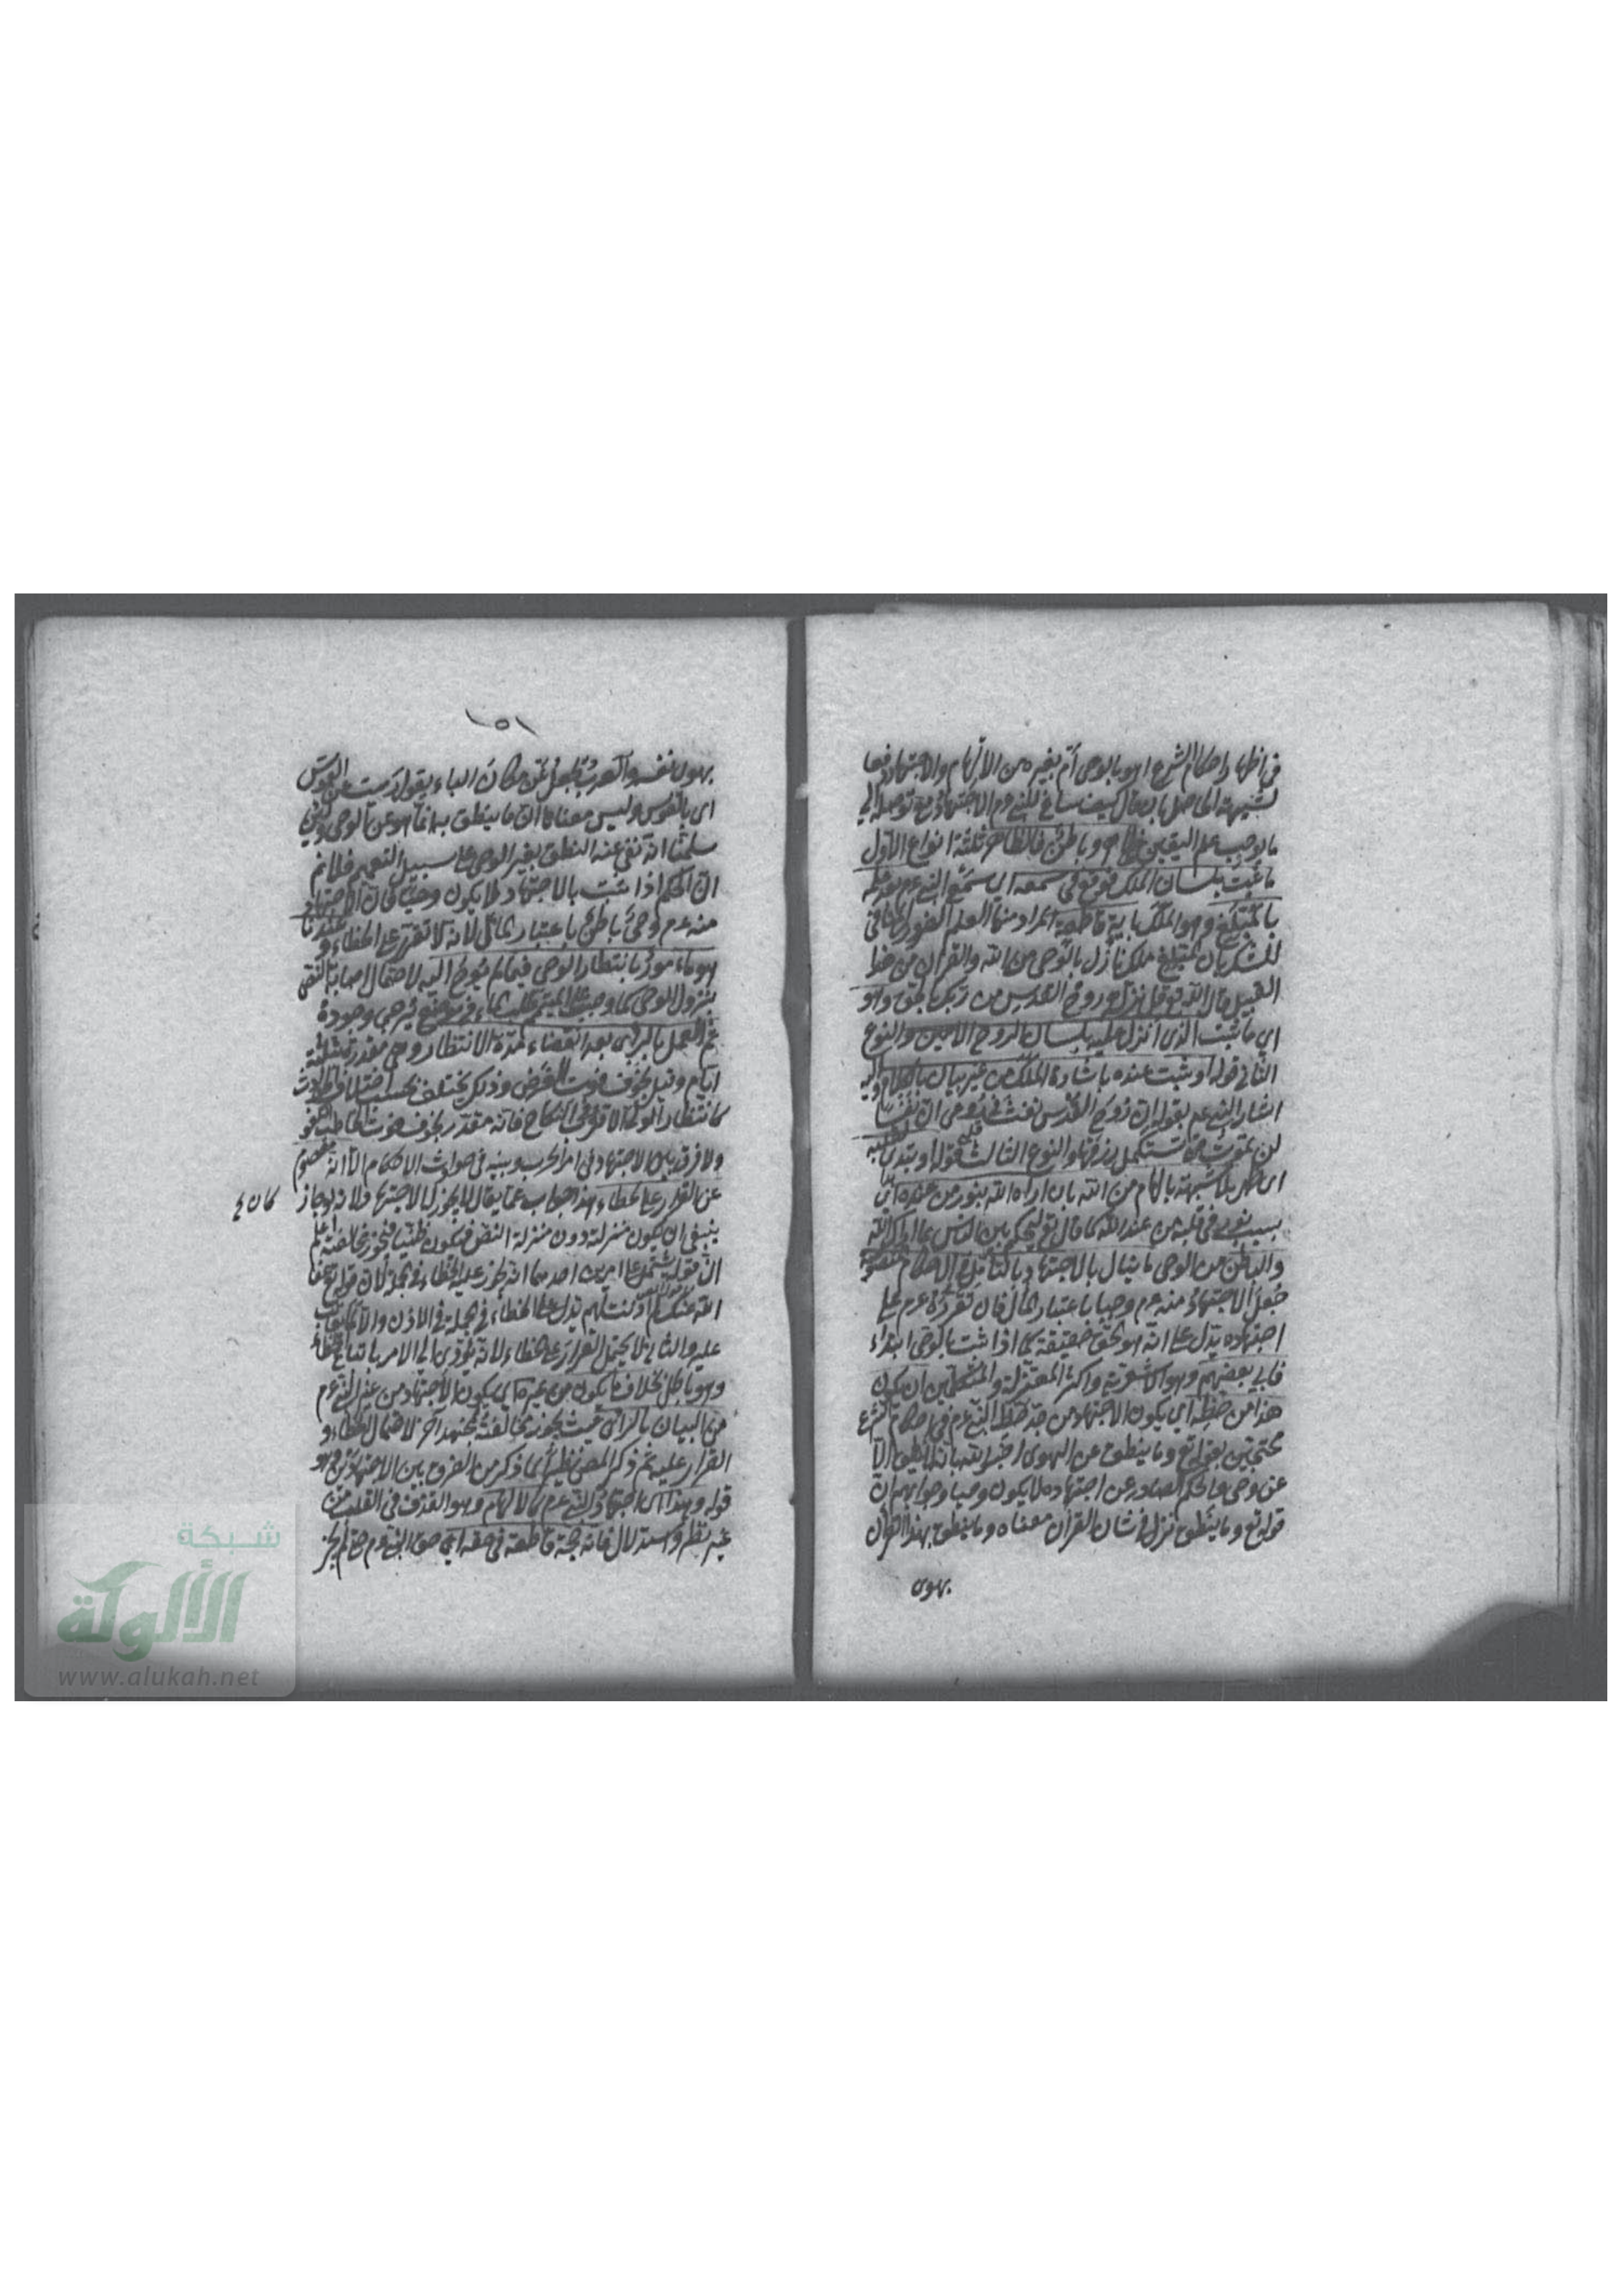 في اظهار احكام الشرع اهو بالوحي أم بغيره من الالهام والاجتهاد دفعا
لشبهة الحاصل بان يقال كيف ساغ للنبي عم الاجتهاد مع توصله الي
ما يوجب علم اليقين ظاهر وباطن فالظاهر ثلثة انواع الاول
ما ثبت بلسان الملك فوقع في سمعه اي سمع النبي عم بعد علمه
بالمبلّغ وهو الملك بآية قاطعة المراد منها العلم الضروري المنافي
للشك بان المبلغ ملك نازل بالوحي من الله والقران من هذا
القبيل قال الله تع قل نزله روح القدس من ربك بالحق وهو
اي ما ثبت الذي انزل عليه بلسان الروح الامين والنوع
الثاني قوله او ثبت عنده باشارة الملك من غير بيان بالكلام واليه
اشار النبي عم بقوله ان روح القدس نفث في روعي ان نفسا
لن تموت حتى تستكمل رزقها والنوع الثالث قوله او تبدى لقلبه
اي ظهر بلا شبهة بالهام من الله بان اراه الله بنور من عنده اي
بسبب نور في قلبه من عند الله كما قال تع لتحكم بين الناس بما اراك الله
والباطن من الوحي ما ينال بالاجتهاد بالتأمل في الاحكام المنصوصة
جُعل الاجتهاد منه عم وحيا باعتبار المآل فان تقريره عم على
اجتهاده يدل على انه هو الحق حقيقة كما اذا ثبت بالوحي ابتداء
فابى بعضهم وهو الاشعرية واكثر المعتزلة والمتكلمين ان يكون
هذا من حظه اي يكون الاجتهاد من حظ النبي عم في احكام الشرع
محتجين بقوله تع وما ينطق عن الهوى اخبر الله بانه لا ينطق الا
عن وحي والحكم الصادر عن اجتهاده لا يكون وحيا وجوابهم ان
قوله تع وما ينطق نزل في شان القران معناه وما ينطق بهذا القرآن
بهوى
١٥١
بهوى نفسه والعرب تجعل عن مكان الباء يقول رميت عن القوس
اي بالقوس وليس معناه ان ما ينطق به انما هو عن الوحي ولئن
سلمنا انه نفى عنه النطق بغير الوحي على سبيل التعميم فلا نم
ان الحكم اذا ثبت بالاجتهاد لا يكون وحيا فان الاجتهاد
منه عم وحي باطن باعتبار المآل لانه لا تقرر على الخطاء وعندنا
هو مأمور بانتظار الوحي فيما لم يوح اليه لاحتمال اصابة النص
بنزول الوحي كما وجب على المتيمم طلب الماء في موضع يُرجى وجوده
ثم العمل بالرأي بعد انقضاء مدة الانتظار وهي مقدرة بثلثة
ايام وقيل بخوف فوت الغرض وذلك يختلف بحسب اختلاف الحوادث
كانتظار الولي الاقرب في النكاح فانه مقدر بخوف فوت الخاطب الكفو
ولا فرق بين الاجتهاد في امر الحرب وبينه في حوادث الاحكام الا انه معصوم
عن القرار على الخطاء هذا جواب عما يقال لا يجوز له الاجتهاد ولانه لو جاز
كان ع
ينبغي ان يكون منزلته دون منزلة النص فيكون ظنيا فيجوز مخالفته اعلم
ان قوله يشتمل على امرين احدهما انه يجوز عليه الخطاء في الجملة لان قوله تع عفا
الله عنك لم اذنت لهم يدل على الخطاء في الجملة في الاذن والا لما عوتب
عليه والثاني لا يحتمل القرار على الخطاء لانه يؤدي الى الامر باتباع الخطاء
وهو باطل بخلاف ما يكون من غيره اي يكون الاجتهاد من غير النبي عم
من البيان بالرأي حيث يجوز مخالفته لمجتهد آخر لاحتمال الخطاء و
القرار عليه ثم ذكر المص نظيرا لما ذكر من الفرق بين الاجتهادين وهو
قوله وهذا اي اجتهاد النبي عم كالالهام وهو القذف في القلب من
غير نظر واستدلال فانه حجة قاطعة في حقه اي حق النبي عم حتى لم يجز
شبكة
الألوكة
www.alukah.net